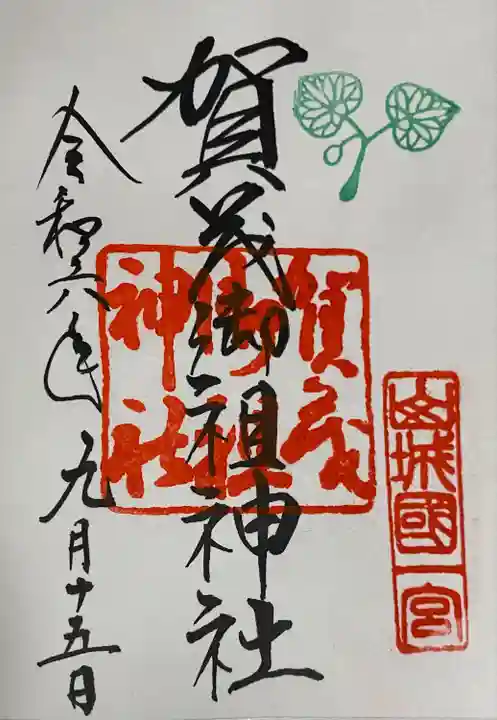 山城國一宮
賀茂御祖神社
賀茂
御祖
神社
令和六年九月十五日